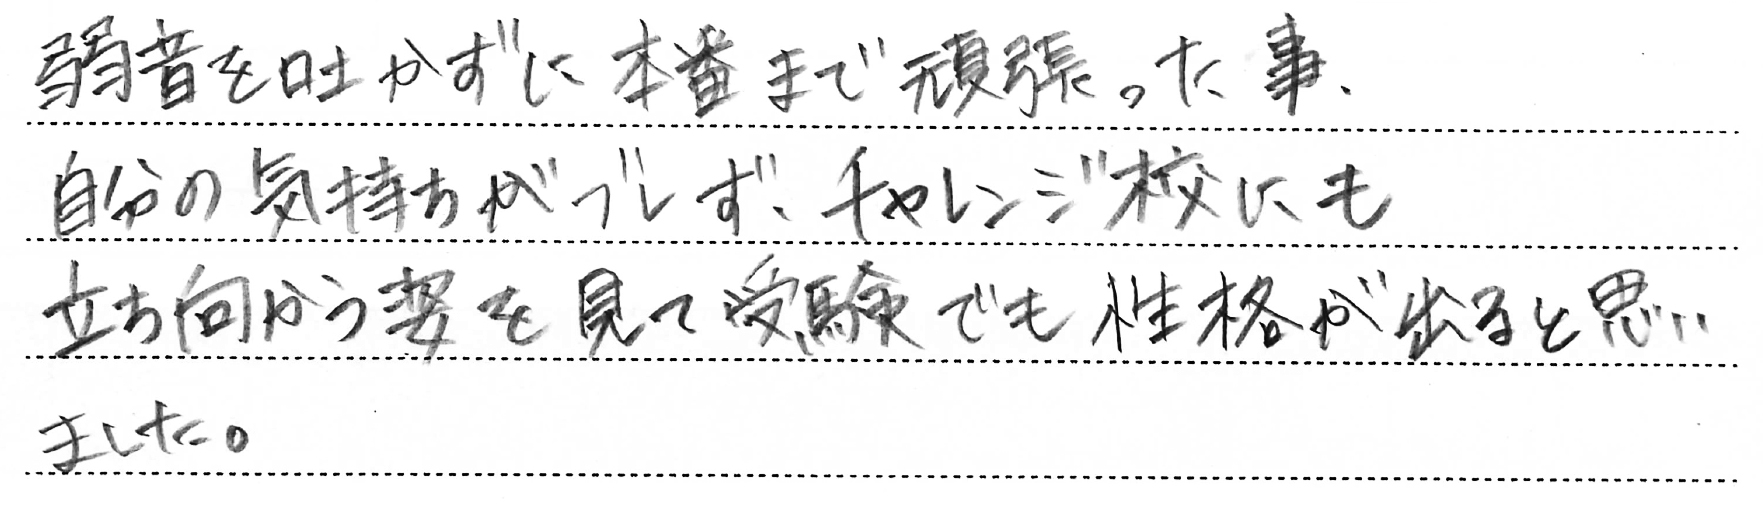 弱音を吐かずに本番まで頑張った事、
自分の気持ちがブレず、チャレンジ校にも
立ち向かう姿を見て受験でも性格が出ると思い
ました。